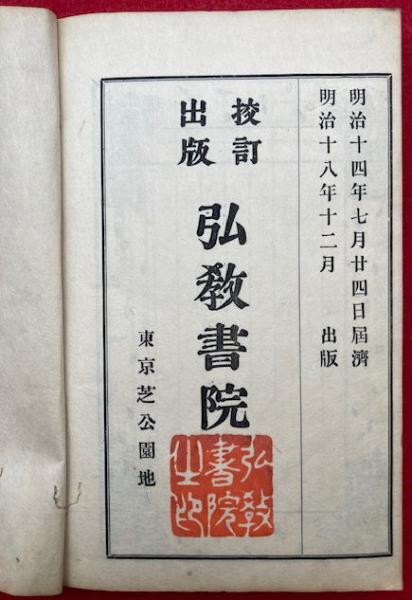 明治十四年七月廿四日屆濟
明治十八年十二月 出版
挍訂
出版
弘教書院
東京芝公園地
弘教
書院
之印